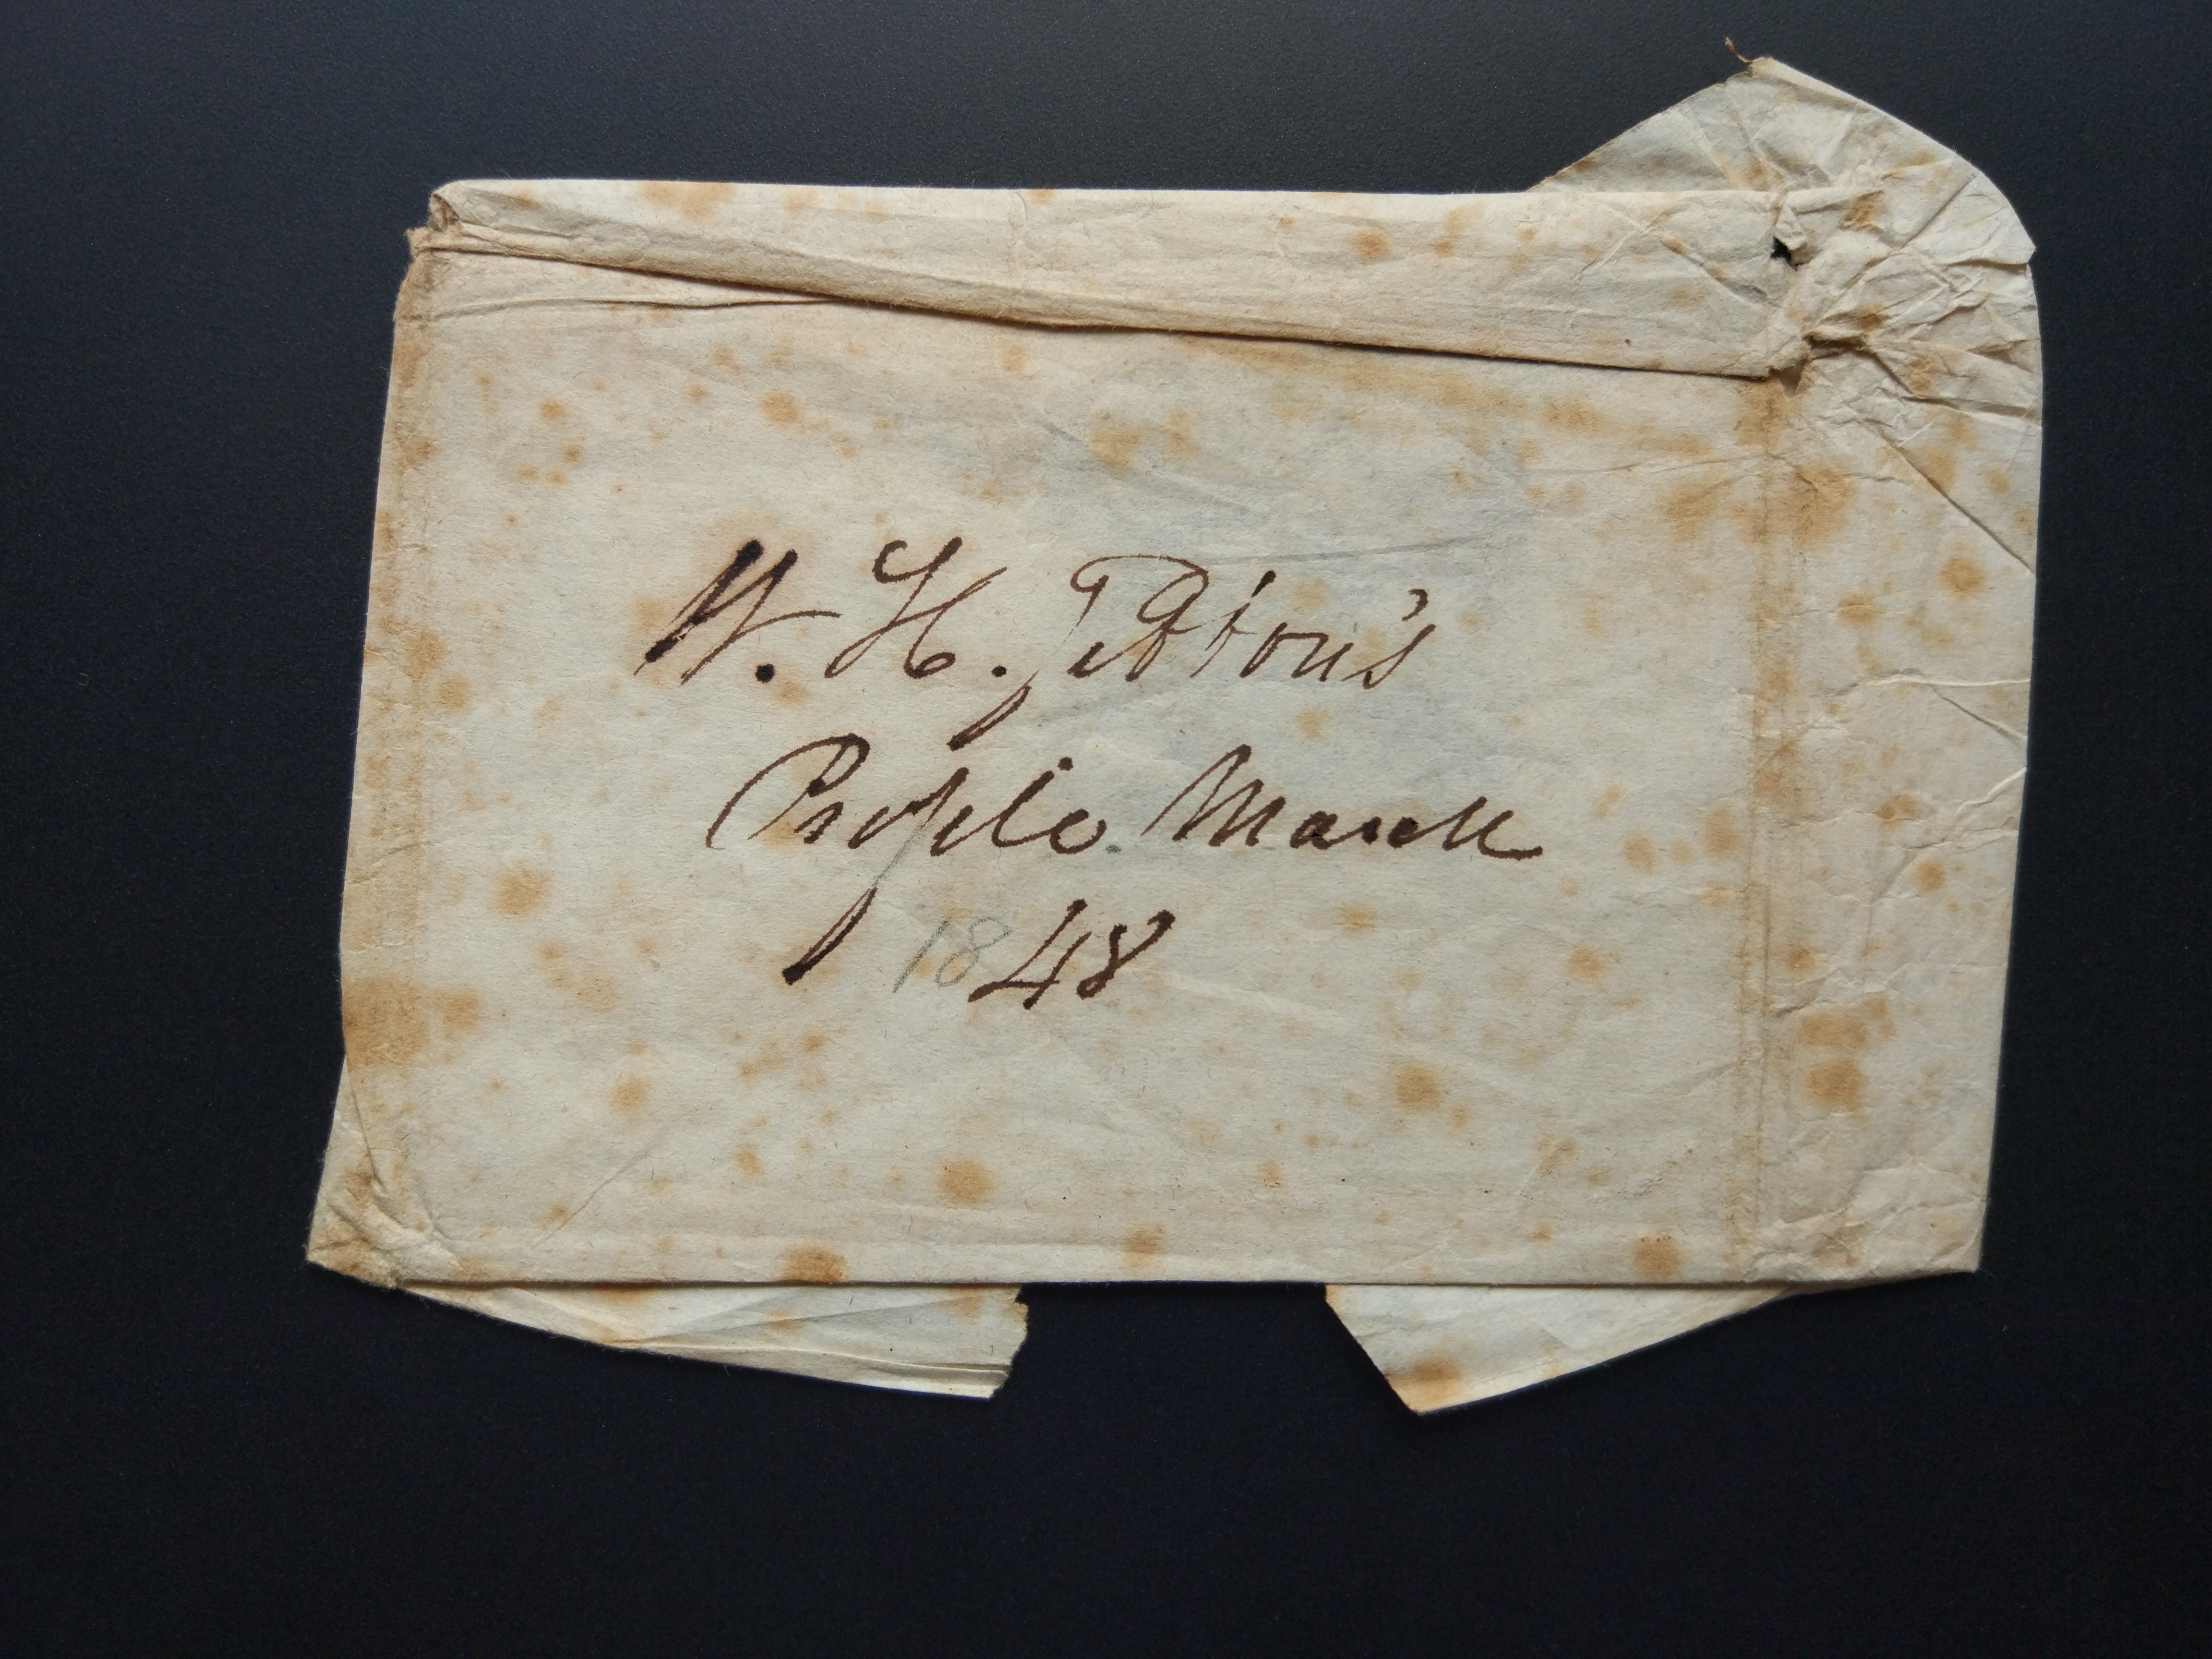 W. H. Tetton's
Profile. March
1848